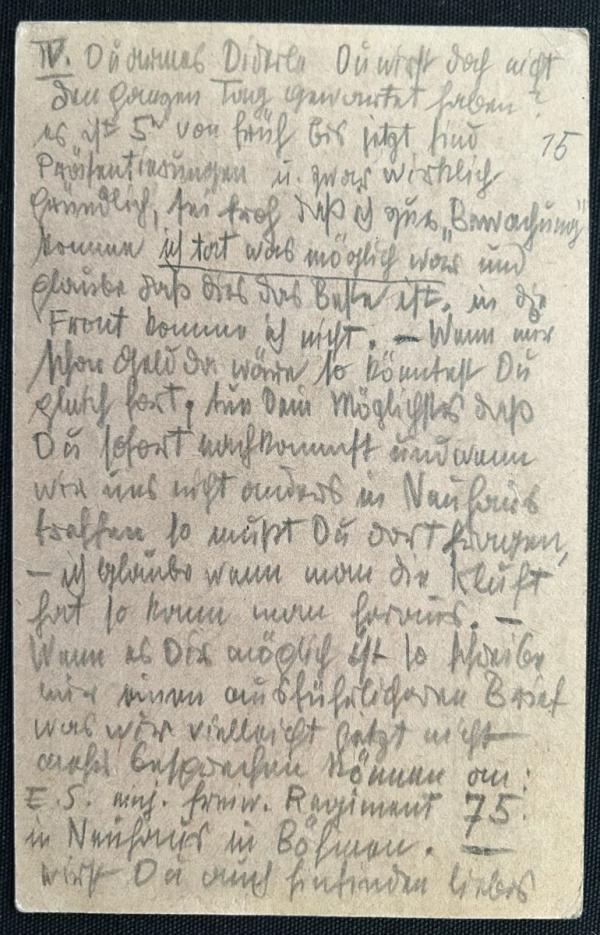 IV. Du armes Diderle Du wirst doch nicht
den ganzen Tag gewartet haben?
es ist 5h von früh bis jetzt sind
15
Präsentierungen u. zwar wirklich
gründlich, sei froh daß ich zur „Bewachung"
komme ich tat was möglich war und
glaube daß dies das Beste ist. in die
Front komme ich nicht. — Wenn nur
schon Geld da wäre so könntest Du
gleich fort, tue Dein Möglichstes daß
Du sofort nachkommst und wenn
wir uns nicht anders in Neuhaus
treffen so mußt Du dort fragen,
— ich glaube wenn man die Kluft
hat so kann man heraus. —
Wenn es Dir möglich ist so schreibe
mir einen ausführlicheren Brief
was wir vielleicht jetzt nicht
mehr besprechen können an:
E. S. einj. freiw. Regiment 75.
in Neuhaus in Böhmen. —
wirst Du auch hinfinden liebes